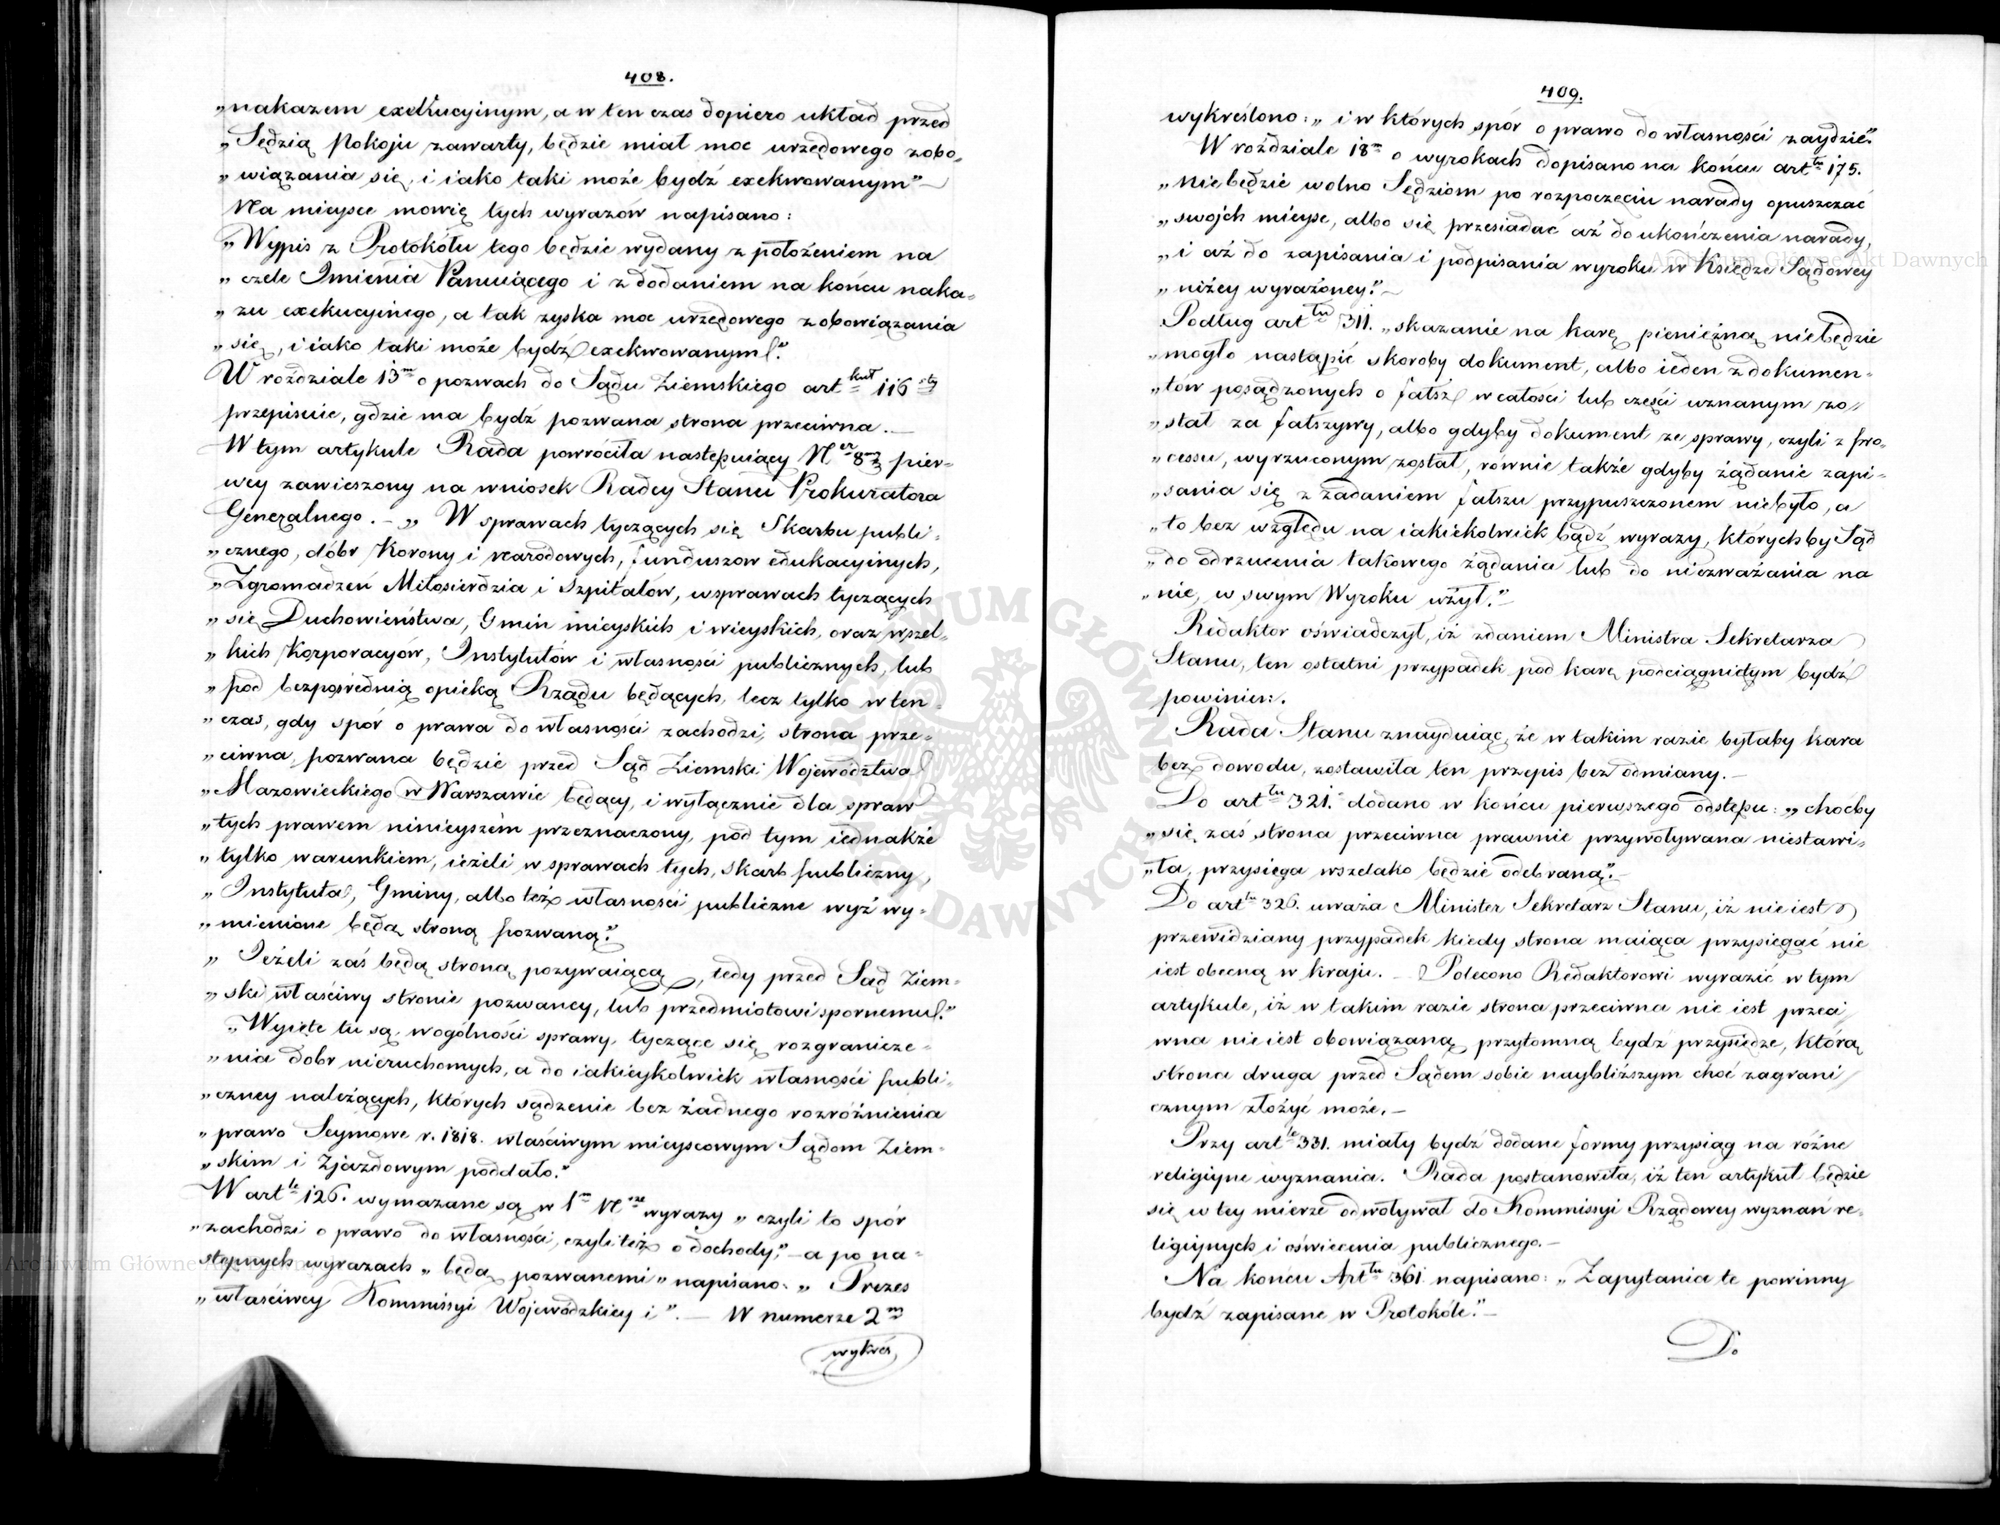 408.
„nakazem exekucyinym, a w ten czas dopiero układ przed
„Sędzią Pokoju zawarty, będzie miał moc urzędowego zobo-
„wiązania się, i iako taki może bydź exekwowanym”—
Na mieysce mowię tych wyrazów napisano:
„Wypis z Protokółu tego będzie wydany z położeniem na
„czele Imienia Panuiącego i z dodaniem na końcu naka-
„zu exekucyinego, a tak zyska moc urzędowego zobowiązania
„się, i iako taki może bydź exekwowanym.”
W roździale 13m o pozwach do Sądu Ziemskiego artkuł 116sty
przepisuie, gdzie ma bydź pozwana strona przeciwna.—
W tym artykule Rada powróciła następuiący Ner 8my pier-
wey zawieszony na wniosek Radcy Stanu Prokuratora
Generalnego.— „W sprawach tyczących się Skarbu publi-
„cznego, dóbr Korony i narodowych, funduszow edukacyinych,
„Zgromadzeń Miłosierdzia i Szpitalów, w sprawach tyczących
„się Duchowieństwa, Gmin mieyskich i wieyskich, oraz wszel-
„kich Korporacyów, Instytutów i własności publicznych, lub
„pod bezpośrednią opieką Rządu będących, lecz tylko w ten-
„czas, gdy spór o prawa do własności zachodzi, strona prze-
„ciwna, pozwana będzie przed Sąd Ziemski Województwa
„Mazowieckiego w Warszawie będący, i wyłącznie dla spraw
„tych prawem ninieyszém przeznaczony, pod tym iednakże
„tylko warunkiem, ieżeli w sprawach tych, skarb publiczny,
„Instytuta, Gminy, albo też własności publiczne wyż wy-
„mienione będą stroną pozwaną.”
„Jeżeli zaś będą stroną pozywaiącą, tedy przed Sąd Ziem-
„ski właściwy stronie pozwaney, lub przedmiotowi spornemu.”
„Wyięte tu są w ogólności sprawy, tyczące się rozgranicze-
„nia dobr nieruchomych, a do iakieykolwiek własności publi-
„czney należących, których sądzenie bez żadnego rozróżnienia
„prawo Seymowe r. 1818. właściwym mieyscowym Sądom Ziem-
„skim i Zjazdowym poddało.”
W artle 126. wymazane są w 1m Nrze wyrazy „czyli to spór
„zachodzi o prawo do własności, czyli też o dochody,”— a po na-
stępnych wyrazach „będą pozwanemi” napisano: „Prezes
„właściwey Kommissyi Wojewódzkiey i”.— W numerze 2m
wykreś
409.
wykreślono: „i w których spór o prawo do własności zaydzie”.
W roździale 18m o wyrokach dopisano na końcu artłu 175.
„Niebędzie wolno Sędziom po rozpoczęciu narady opuszczać
„swojch mieysc, albo się przesiadać aż do ukończenia narady,
„i aż do zapisania i podpisania wyroku w Księdze Sądowey
„niżey wyrażoney.”—
Podług artłu 311. „skazanie na karę pieniężną niebędzie
„mogło nastąpić skoroby dokument, albo ieden z dokumen-
„tów posądzonych o fałsz w całości lub części uznanym zo-
„stał za fałszywy, albo gdyby dokument ze sprawy, czyli z pro-
„cessu, wyrzuconym został, równie także gdyby żądanie zapi-
„sania się z zadaniem fałszu przypuszczonem niebyło, a
„to bez względu na iakiekolwiek bądź wyrazy, których by Sąd
„do odrzucenia takowego żądania lub do niezważania na
„nie, w swym Wyroku użył.”—
Redaktor oświadczył, iż zdaniem Ministra Sekretarza
Stanu, ten ostatni przypadek pod karę podciągniętym bydź
powinien.
Rada Stanu znayduiąc, że w takim razie byłaby kara
bez dowodu, zostawiła ten przepis bez odmiany.—
Do artłu 321. dodano w końcu pierwszego odstępu: „choćby
„się zaś strona przeciwna prawnie przywoływana niestawi-
„ła, przysięga wszelako będzie odebraną.”—
Do artłu 326. uważa Minister Sekretarz Stanu, iż nie iest
przewidziany przypadek kiedy strona maiąca przysięgać nie
iest obecną w kraju.— Polecono Redaktorowi wyrazić w tym
artykule, iż w takim razie strona przeciwna nie iest przeci
wna nie iest obowiązaną przytomną bydź przysiędze, którą
strona druga przed Sądem sobie naybliższym choć zagrani
cznym złożyć może.—
Przy artle 331. miały bydź dodane formy przysiąg na różne
religiyne wyznania. Rada postanowiła, iż ten artykuł będzie
się w tey mierze odwoływał do Kommissyi Rządowey wyznań re-
ligiynych i oświecenia publicznego.—
Na końcu Artłu 361. napisano: „Zapytania te powinny
bydź zapisane w Protokóle.”—
Do
Archiwum Główne Akt Dawnych
ARCHIWUM GŁÓWNE AKT DAWNYCH